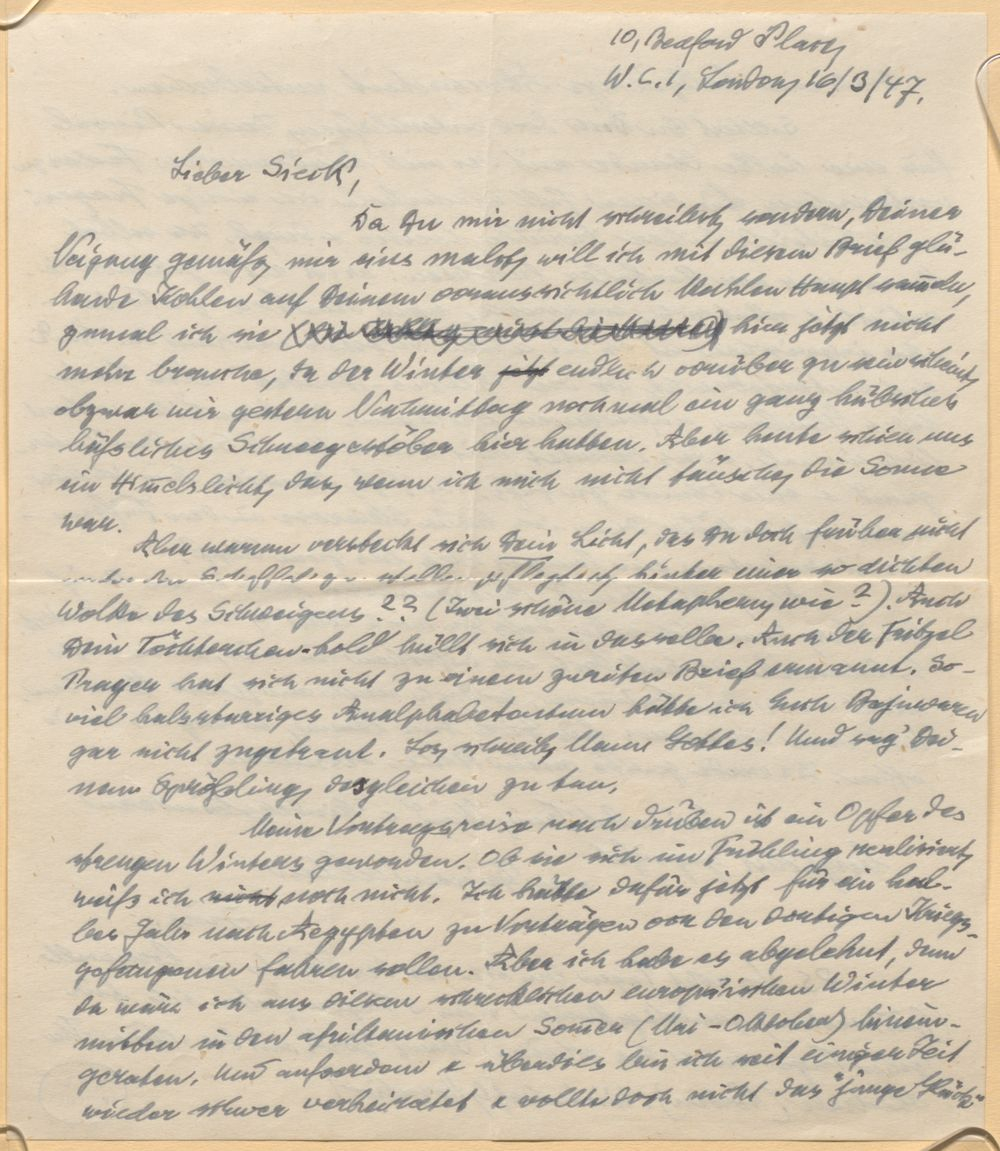 10, Bedford Place
W.C.1, London 16/3/47.
Lieber Sieck,
Da Du mir nicht schreibst, sondern, Deiner
Neigung gemäß, mir eins malst, will ich mit diesem Brief glü-
hende Kohlen auf Deinem voraussichtlich kahlen Haupt sammeln,
zumal ich sie hier jetzt nicht
mehr brauche, da der Winter jetzt endlich vorüber zu sein scheint,
obzwar wir gestern Nachmittag nochmal ein ganz hübsches
häßliches Schneegestöber hier hatten. Aber heute schien uns
ein Himmelslicht, das, wenn ich mich nicht täusche, die Sonne
war.
Aber warum versteckt sich Dein Licht, das Du doch früher nicht
unter den Scheffel zu stellen pflegtest, hinter einer so dichten
Wolke des Schweigens?? (Zwei schöne Metaphern, wie?). Auch
Dein Töchterchen hold hüllt sich in dasselbe. Auch der Fritzel
Prager hat sich nicht zu einem zweiten Brief ermannt. So-
viel halsstarriges Analphabetentum hätte ich Euch Bajuwaren
gar nicht zugetraut. Los, schreib, Mann Gottes! Und sag' Dei-
nem Sprößling, desgleichen zu tun.
Meine Vortragsreise nach drüben ist ein Opfer des
strengen Winters geworden. Ob sie sich im Frühling realisiert,
weiß ich nicht noch nicht. Ich hätte dafür jetzt für ein hal-
bes Jahr nach Aegypten zu Vorträgen vor den dortigen Kriegs-
gefangenen fahren sollen. Aber ich habe es abgelehnt, denn
da wäre ich aus diesem schrecklichen europäischen Winter
mitten in den afrikanischen Sommer (Mai-Oktober) hinein-
geraten. Und außerdem & überdies bin ich seit einiger Zeit
wieder schwer verheiratet & wollte doch nicht das "junge Glück"